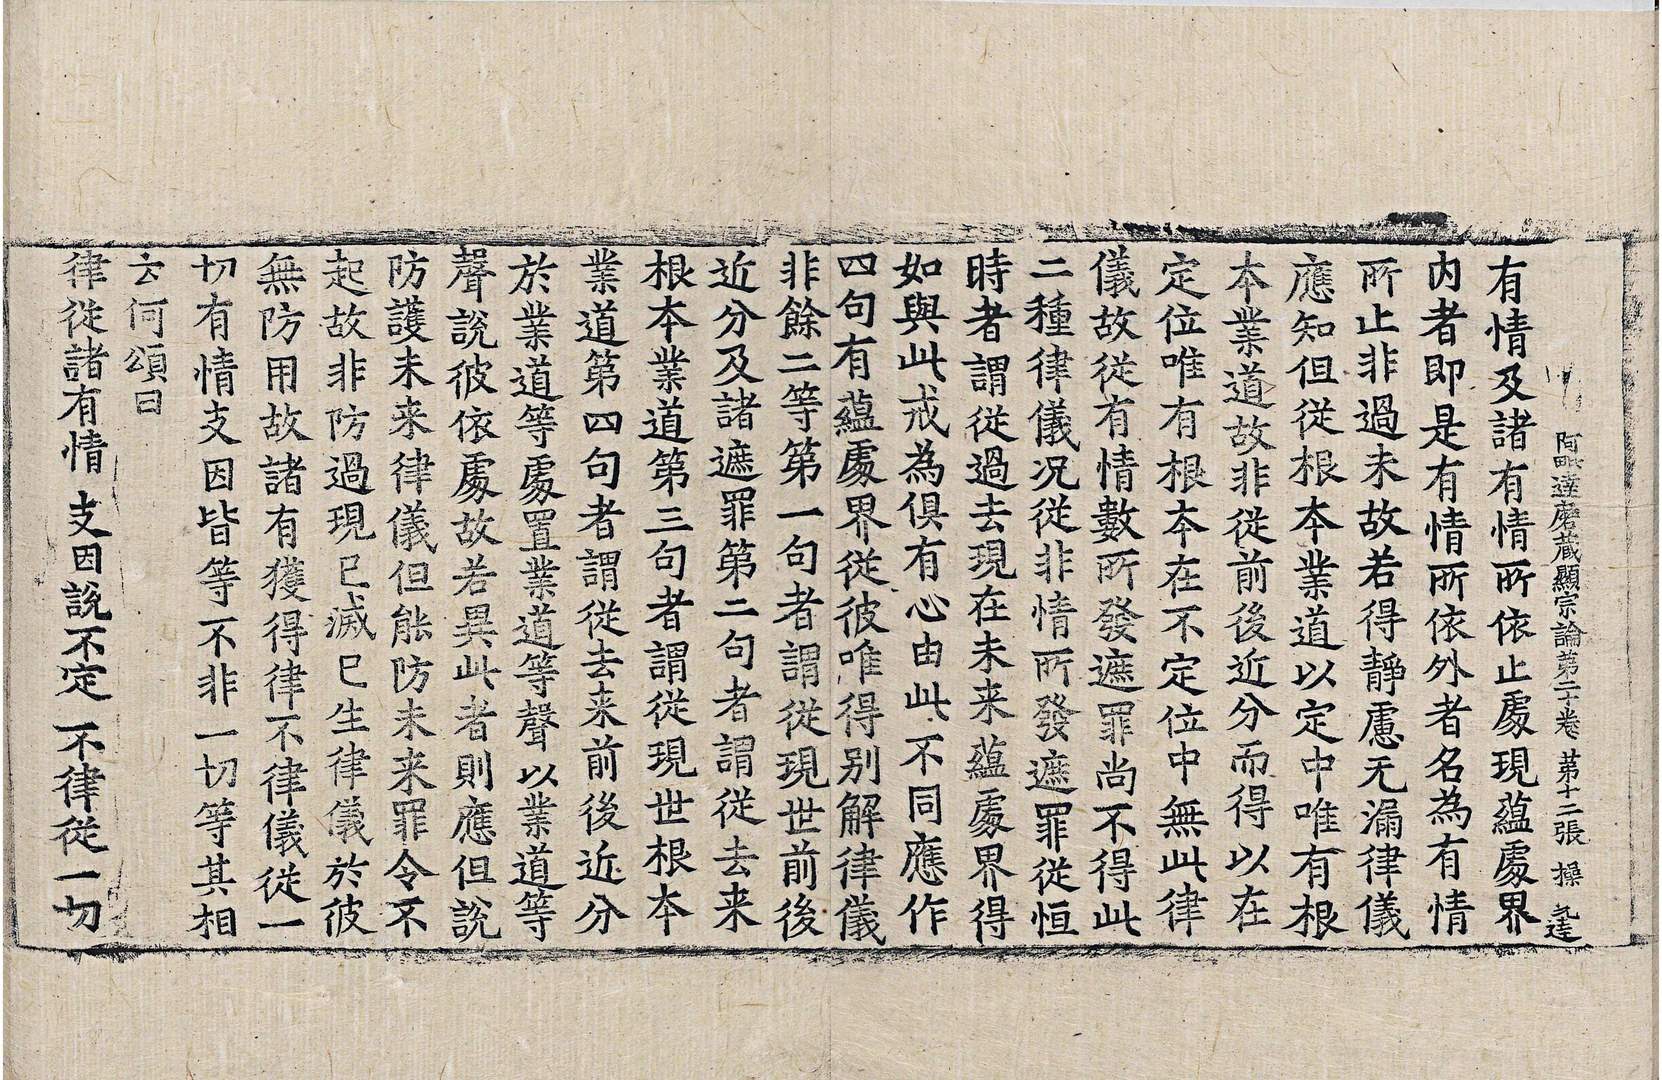 阿毗達磨蔵顯宗論第二十卷 苐十二張 操
有情及諸有情所依止處現蘊處界
内者即是有情所依外者名為有情
所止非過未故若得靜慮无漏律儀
應知但從根夲業道以定中唯有根
夲業道故非從前後近分而得以在
定位唯有根夲在不定位中無此律
儀故從有情數所發遮罪尚不得此
二種律儀况從非情所發遮罪從恒
時者謂從過去現在未来蘊處界得
如與此戒為俱有心由此不同應作
四句有蘊處界從彼唯得别解律儀
非餘二等第一句者謂從現世前後
近分及諸遮罪第二句者謂從去来
根夲業道第三句者謂從現世根夲
業道第四句者謂從去来前後近分
於業道等處置業道等聲以業道等
聲說彼依處故若異此者則應但說
防護未来律儀但能防未来罪令不
起故非防過現已滅已生律儀於彼
無防用故諸有獲得律不律儀從一
切有情支因皆等不非一切等其相
云何頌曰
律從諸有情 支因說不定 不律從一切